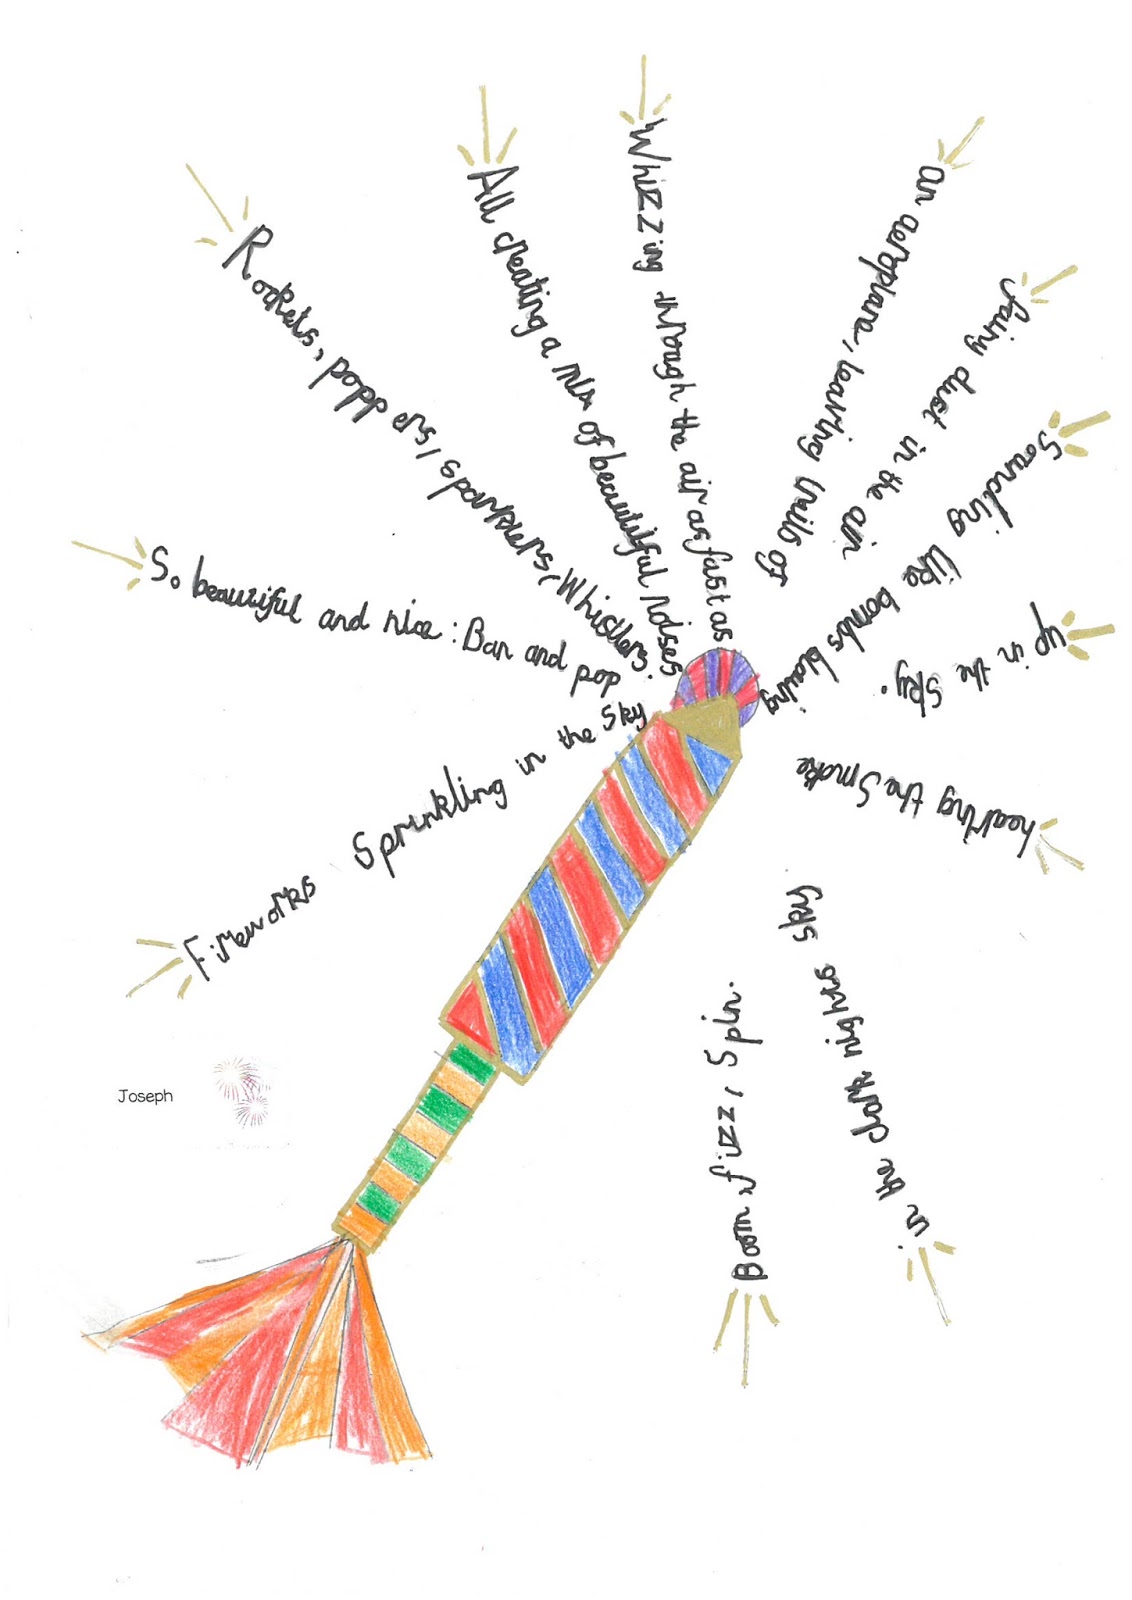 Fireworks Sprinkling in the sky
So beautiful and nice: Ban and pop
Rockets, poppers, sparklers, Whistlers.
All creating a mix of beautiful noises
Whizzing through the air as fast as
an aeroplane, leaving trails of
fairy dust in the air
Sounding like bombs blowing
up in the sky.
hearing the Smoke
in the dark nights sky
Boom, fizz, Spin.
Joseph